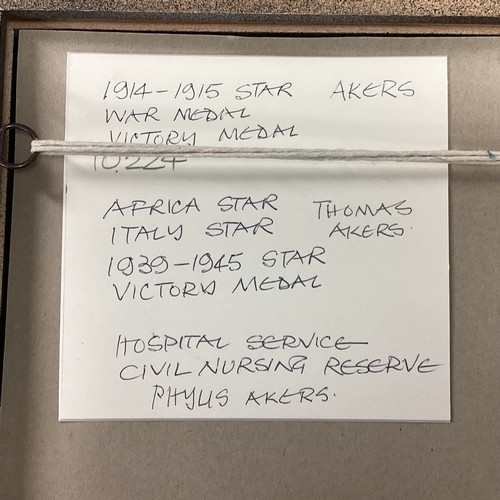 1914-1915 STAR AKERS
WAR MEDAL
VICTORY MEDAL
10.224
AFRICA STAR THOMAS
ITALY STAR AKERS.
1939-1945 STAR
VICTORY MEDAL
HOSPITAL SERVICE
CIVIL NURSING RESERVE
PHYLIS AKERS.